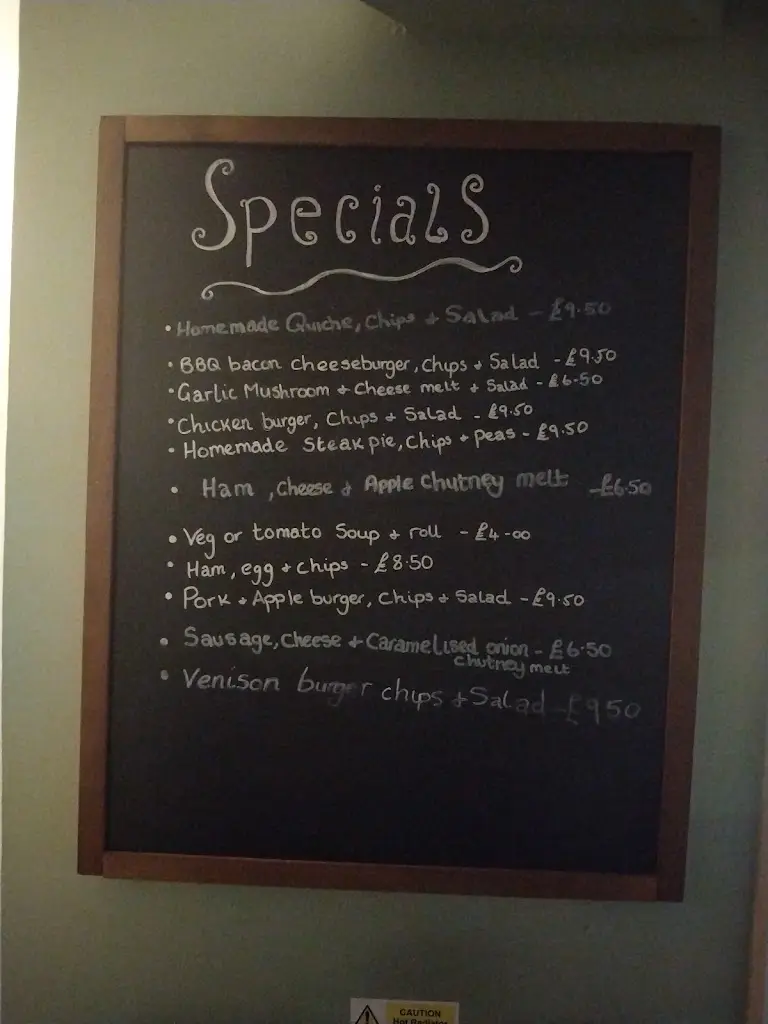 Specials
• Homemade Quiche, Chips + Salad - £9.50
• BBQ bacon cheeseburger, Chips + Salad - £9.50
• Garlic Mushroom + Cheese melt + Salad - £6.50
• Chicken burger, Chips + Salad - £9.50
• Homemade Steak pie, Chips + Peas - £9.50
• Ham, Cheese + Apple Chutney melt - £6.50
• Veg or tomato Soup + roll - £4-00
• Ham, egg + chips - £8.50
• Pork + Apple burger, Chips + Salad - £9.50
• Sausage, Cheese + Caramelised onion - £6.50
chutney melt
• Venison burger chips + Salad - £950
CAUTION
Hot Radiator